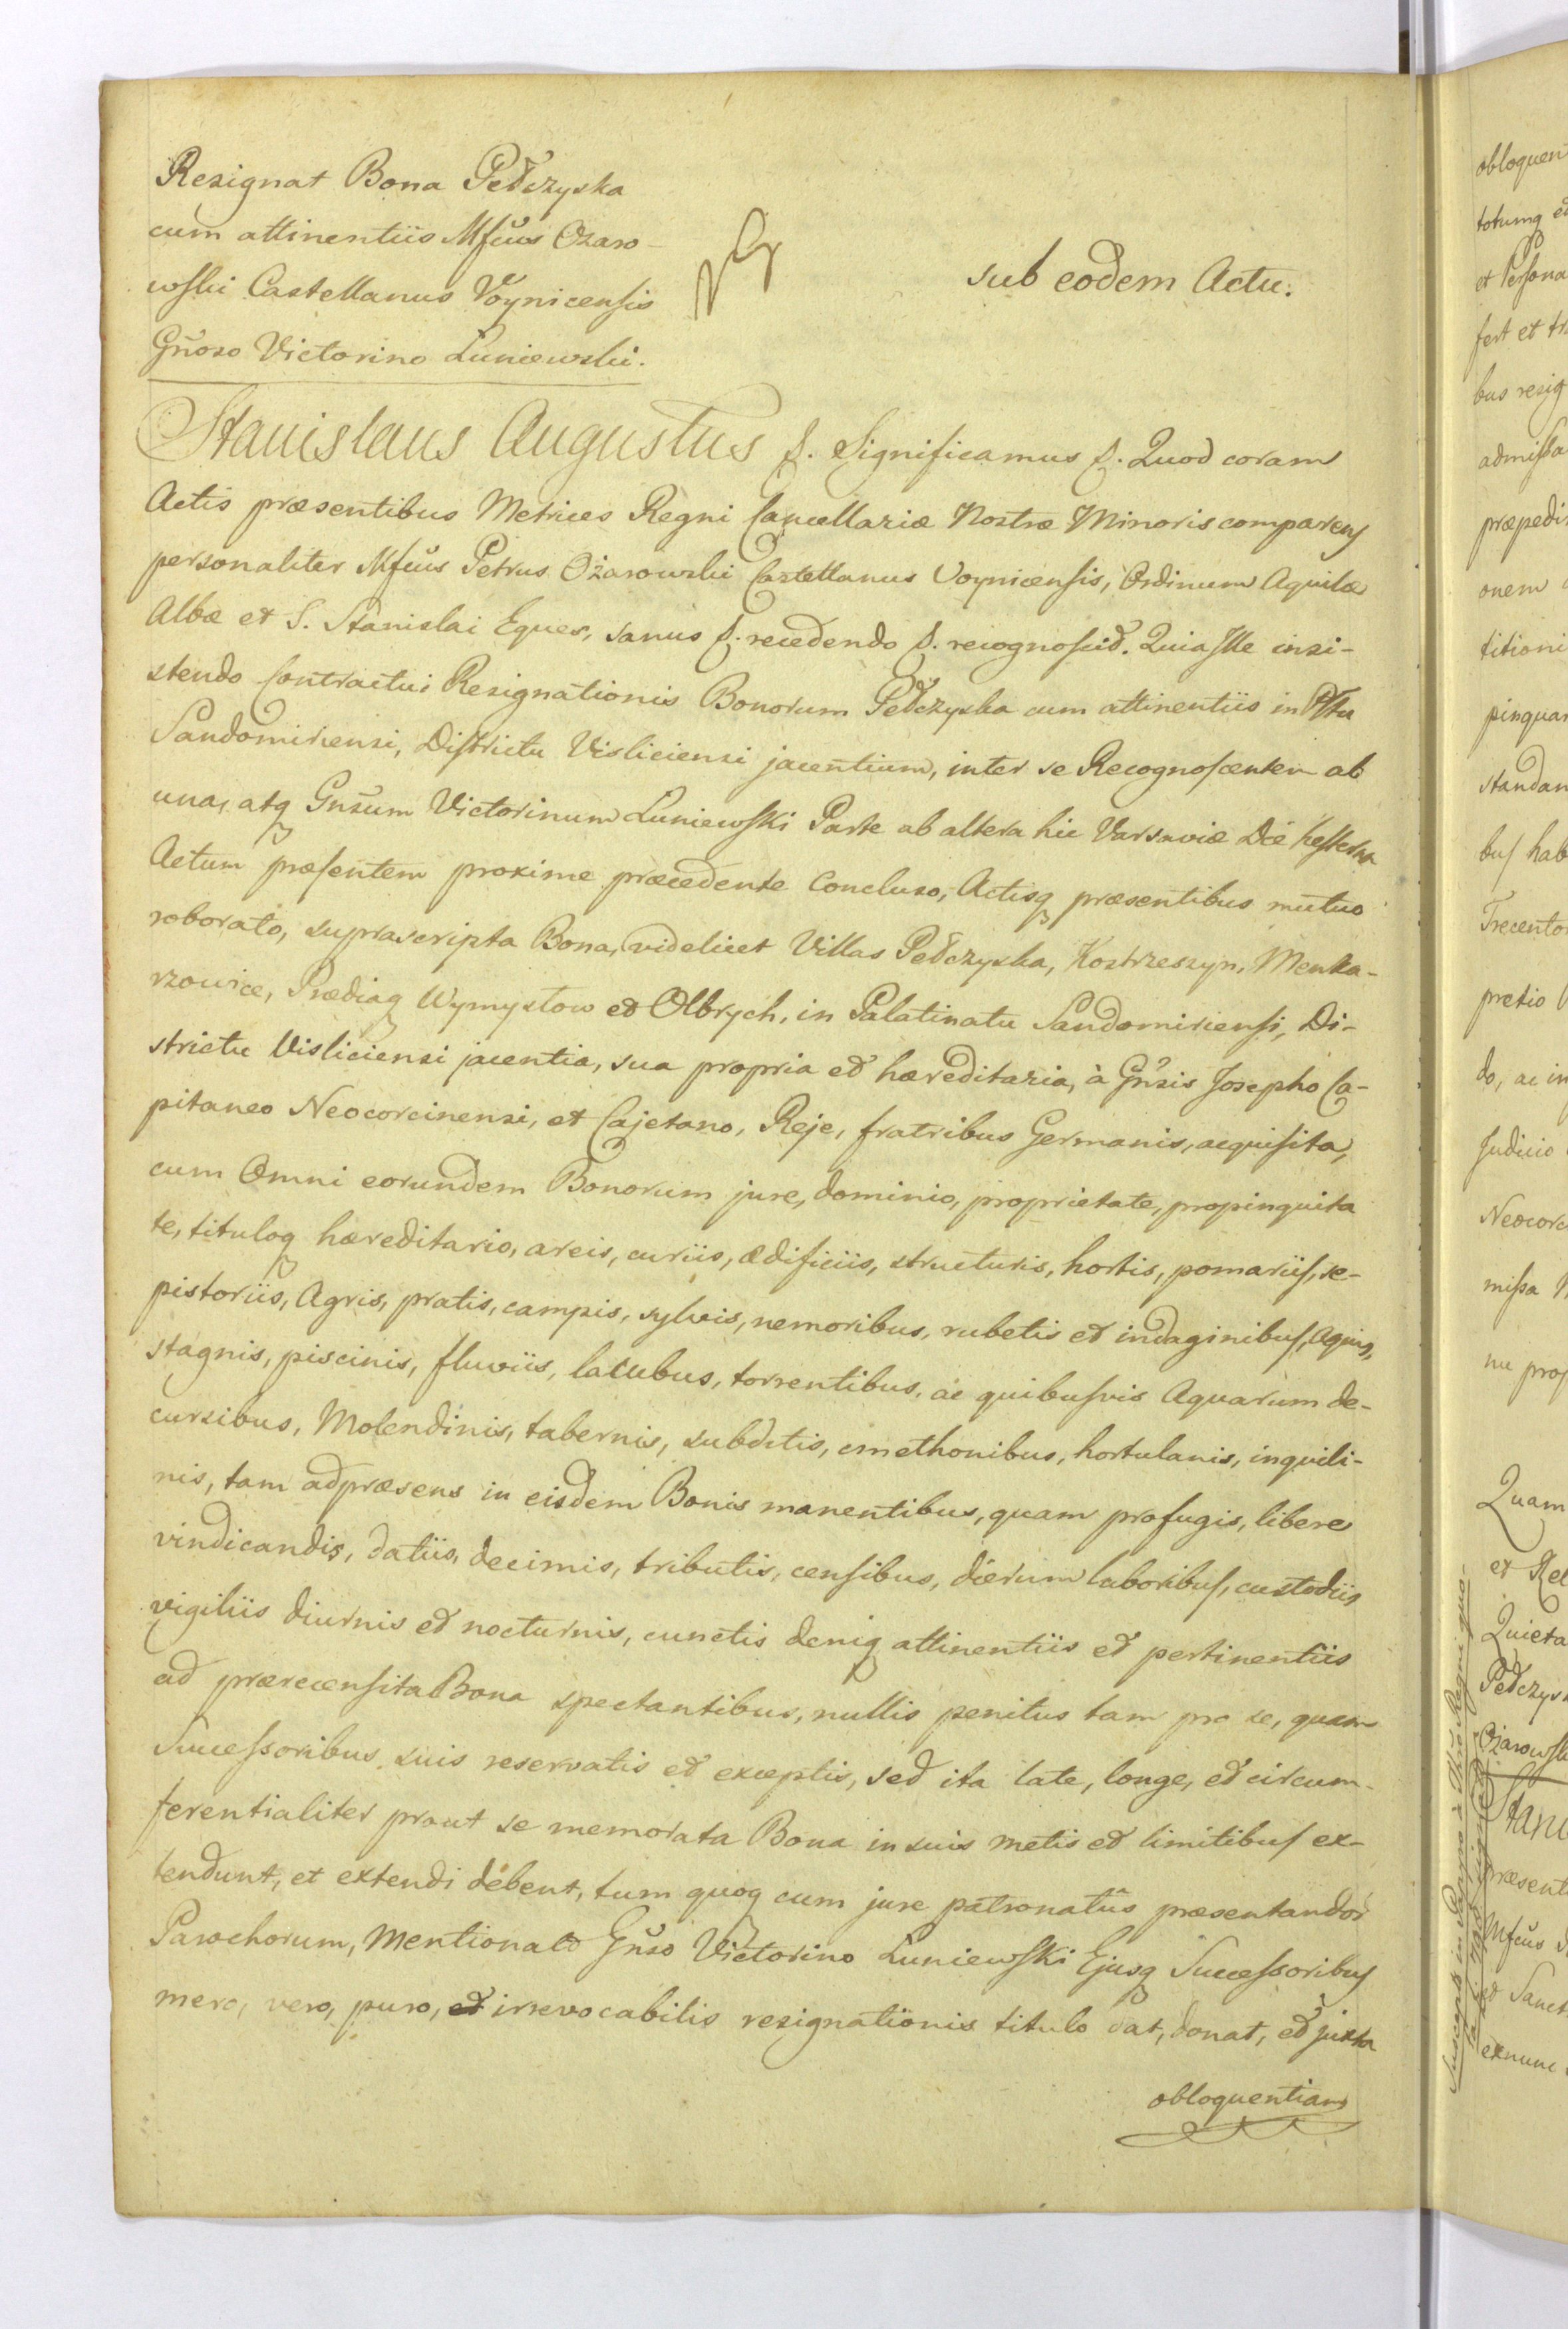 Resignat Bona Pełczyska
cum attinentiis Mfcus Ożaro-
wski Castellanus Voynicensis
Gnoso Victorino Łuniewski.
sub eodem Actu.
Stanislaus Augustus &. Significamus &. Quod coram
Actis præsentibus Metrices Regni Cancellariæ Nostræ Minoris comparens
personaliter Mfcus Petrus Ożarowski Castellanus Voynicensis, Ordinum Aquilæ
Albæ et S. Stanislai Eques, sanus &. recedendo &. recognoscit. Quia Ille insi-
stendo Contractui Resignationis Bonorum Pełczyska cum attinentiis in Pttu
Sandomiriensi, Districtu Visliciensi jacentium, inter se Recognoscentem ab
una, atq Gnsum Victorinum Łuniewski Parte ab altera hic Varsaviæ Die hesterna
Actum præsentem proxime præcedente Concluso, Actisq præsentibus mutuo
roborato, suprascripta Bona, videlicet Villas Pełczyska, Kostrzeszyn, Menta-
rzowice, Prædiaq Wymysłow et Olbrych, in Palatinatu Sandomiriensi, Di-
strictu Visliciensi jacentia, sua propria et hæreditaria, à Gnsis Josepho Ca-
pitaneo Neocorcinensi, et Cajetano, Reje, fratribus Germanis, acquisita,
cum Omni eorundem Bonorum jure, dominio, proprietate, propinquita
te, tituloq hæreditario, areis, curiis, ædificiis, structuris, hortis, pomariis, re-
pistoriis, Agris, pratis, campis, sylvis, nemoribus, rubetis et indaginibus, Aquis,
stagnis, piscinis, fluviis, lacubus, torrentibus, ac quibusvis Aquarum de-
cursibus, Molendinis, tabernis, subditis, cmethonibus, hortulanis, inquili-
nis, tam adpræsens in eisdem Bonis manentibus, quam profugis, libere
vindicandis, datiis, decimis, tributis, censibus, dierum laboribus, custodiis
vigiliis diurnis et nocturnis, cunctis deniq attinentiis et pertinentiis
ad prærecensita Bona spectantibus, nullis penitus tam pro se, quam
Successoribus suis reservatis et exceptis, sed ita late, longe, et circum-
ferentialiter prout se memorata Bona in suis metis et limitibus ex-
tendunt, et extendi debent, tum quoq cum jure patronatûs præsentandor
Parochorum, Mentionato Gnso Victorino Łuniewski Ejusq Successoribus
mero, vero, puro, et irrevocabilis resignationis titulo dat, donat, et juxta
obloquentiam
obloquen
totumq
et Persona
fert et
bus resig
admissa
præpedi
onem
titioni
pinquar
standan
bus hab
Trecento
pretio
do, ac in
Judicio
Neocorc
missa
nu prop
Quam
et Rel
Quieta
Pełczys
Ożarowsk
Stani
præsenti
Mfcus
et Sanct
exnunc